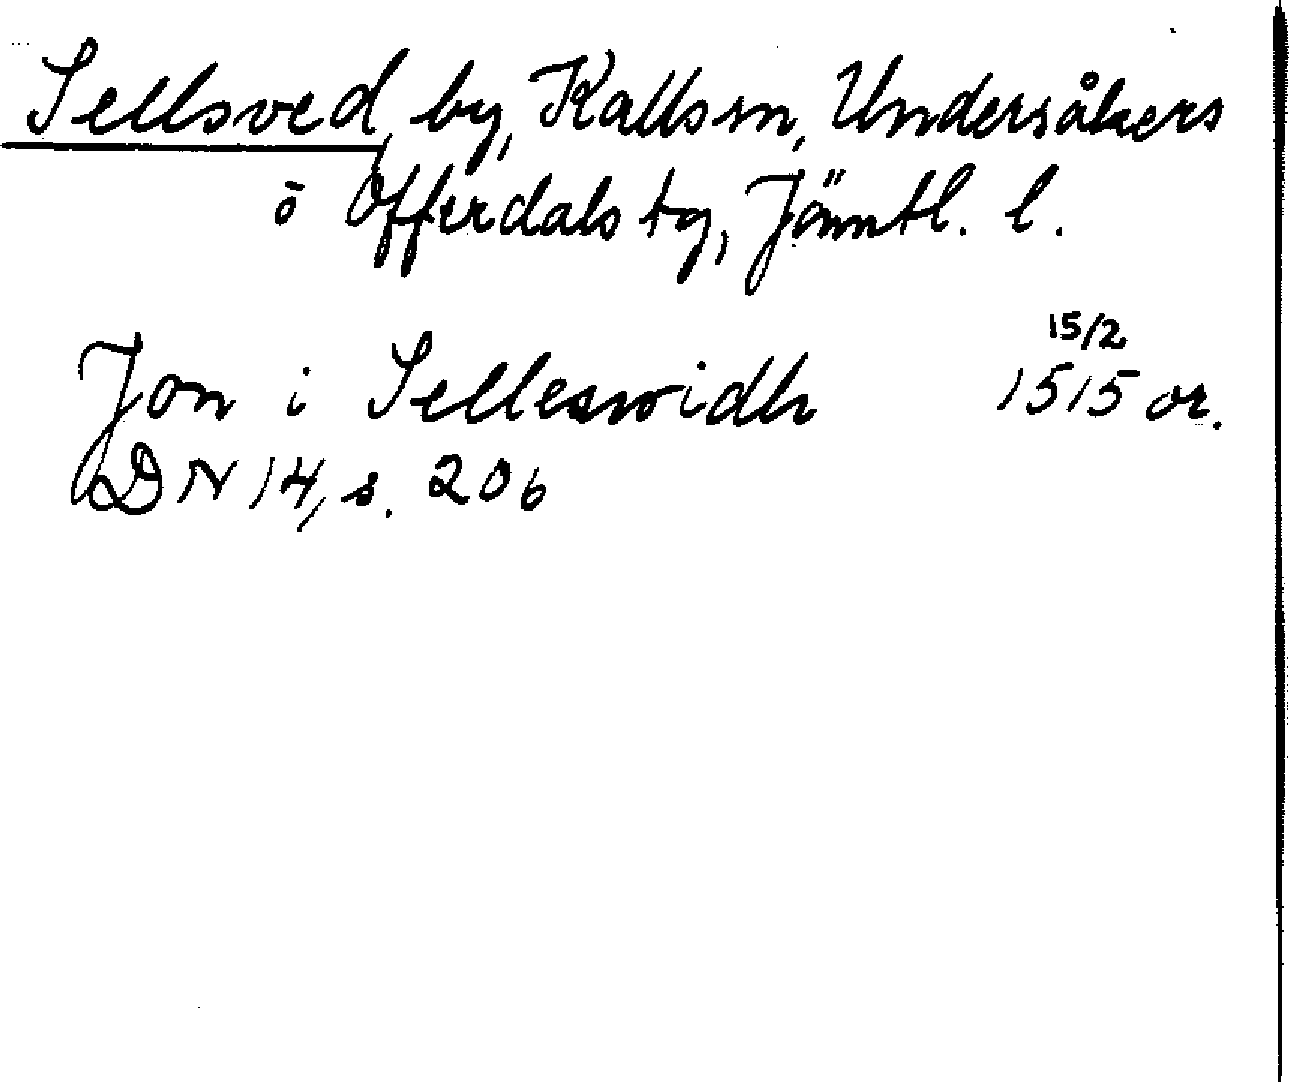 Sellsved, by, Kallsm, Undersåkers
o Offerdals tg, Jämtl. l.
15/2
Jon i Selleswidh 1515 or.
DN 14, s. 206